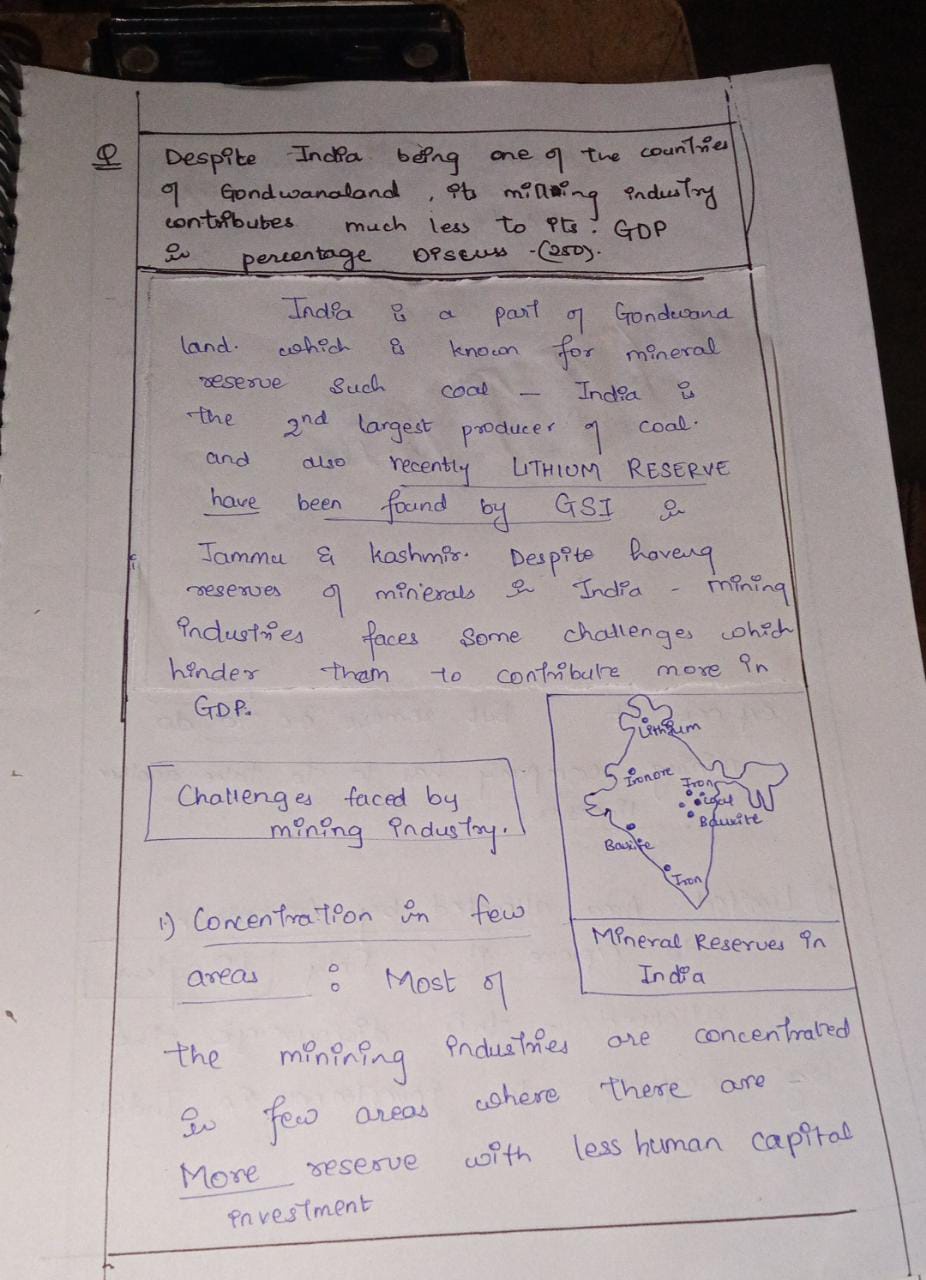 Q
Despite India being one of the countries
of Gondwanaland, its mining industry
contributes much less to its GDP
in percentage Discuss -(250).
India is a part of Gondwand
land. which is known for mineral
reserve such coal — India is
the 2nd largest producer of coal.
and also recently LITHIUM RESERVE
have been found by GSI in
Jammu & kashmir. Despite haveng
reserves of minerals in India - mining
industries faces some challenges which
hinder tham to contribute more in
GDP.
Lithium
Iron ore
Iron
Bauxite
Bauxite
Iron
Mineral Reserves in
India
Challenges faced by
mining industry.
1) Concentration in few
areas : Most of
the minining industries are concentrated
in few areas where there are
More reserve with less human capital
investment